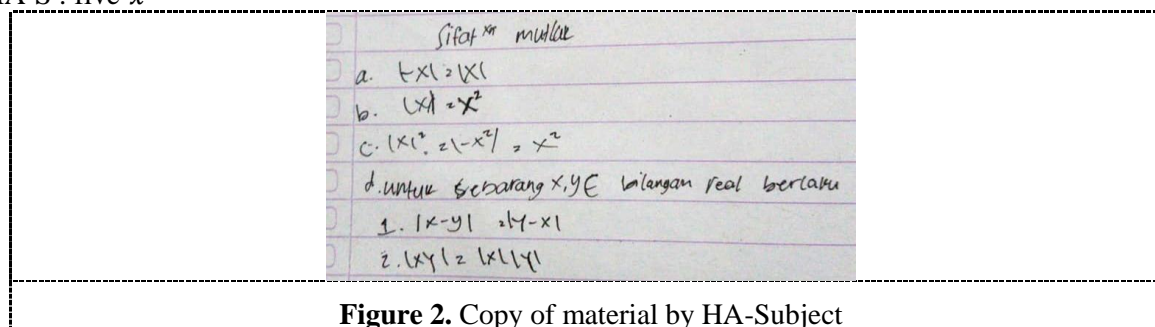 Sifat² mutlak
a. |-x| = |x|
b. |x| = x²
c. |x|² = |-x²| = x²
d. untuk sebarang x,y ∈ bilangan real berlaku
1. |x-y| = |y-x|
2. |xy| = |x||y|
Figure 2. Copy of material by HA-Subject